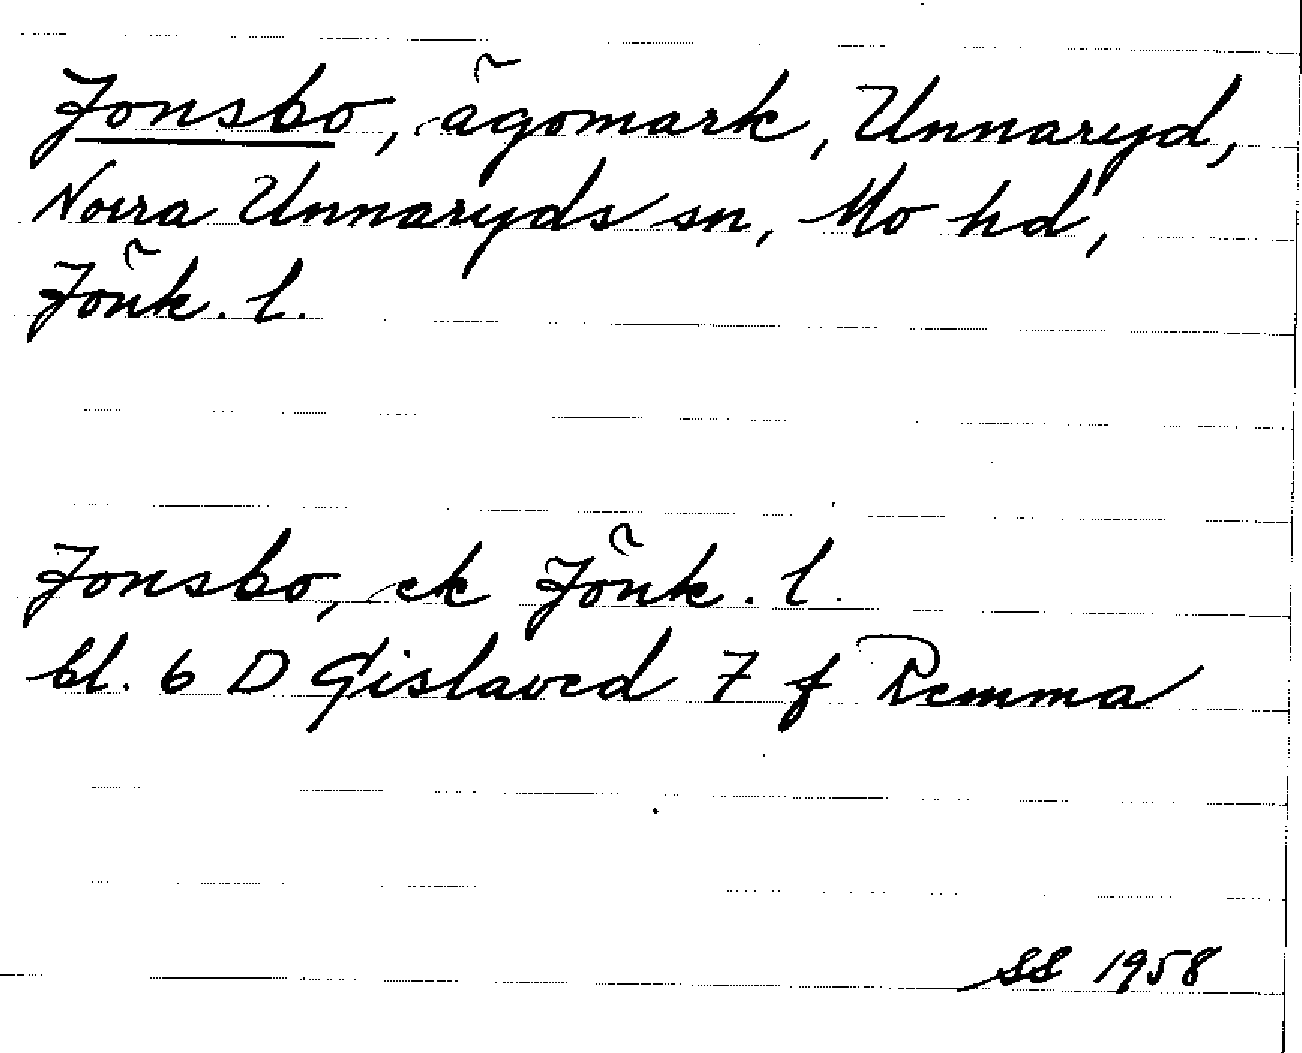 Jonsbo, ägomark, Unnaryd,
Norra Unnaryds sn, Mo hd,
Jönk. l.
Jonsbo, ek Jönk. l.
bl. 6 D Gislaved 7 f Remma
SS 1958